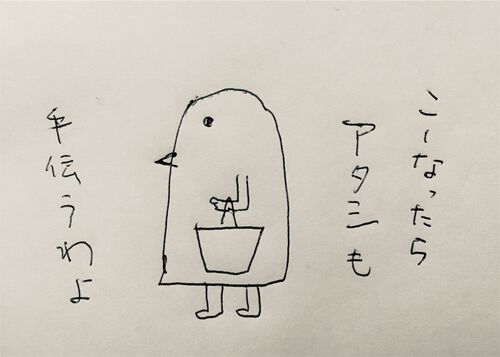 こーなったら
アタシも
手伝うわよ